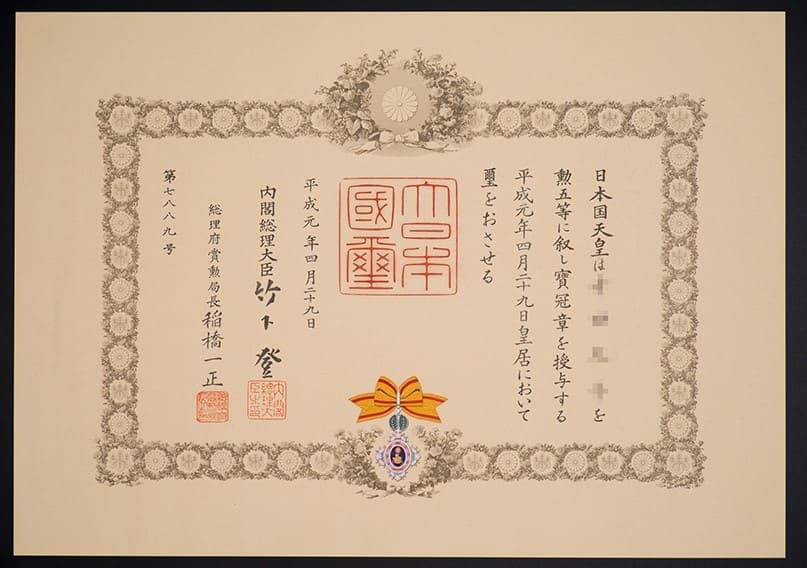 日本国天皇は を
勲五等に叙し寶冠章を授与する
平成元年四月二十九日皇居において
璽をおさせる
大日本
國璽
平成元年四月二十九日
内閣総理大臣 竹下登
内閣
總理大
臣之印
総理府賞勲局長 稲橋一正
第七八八九号